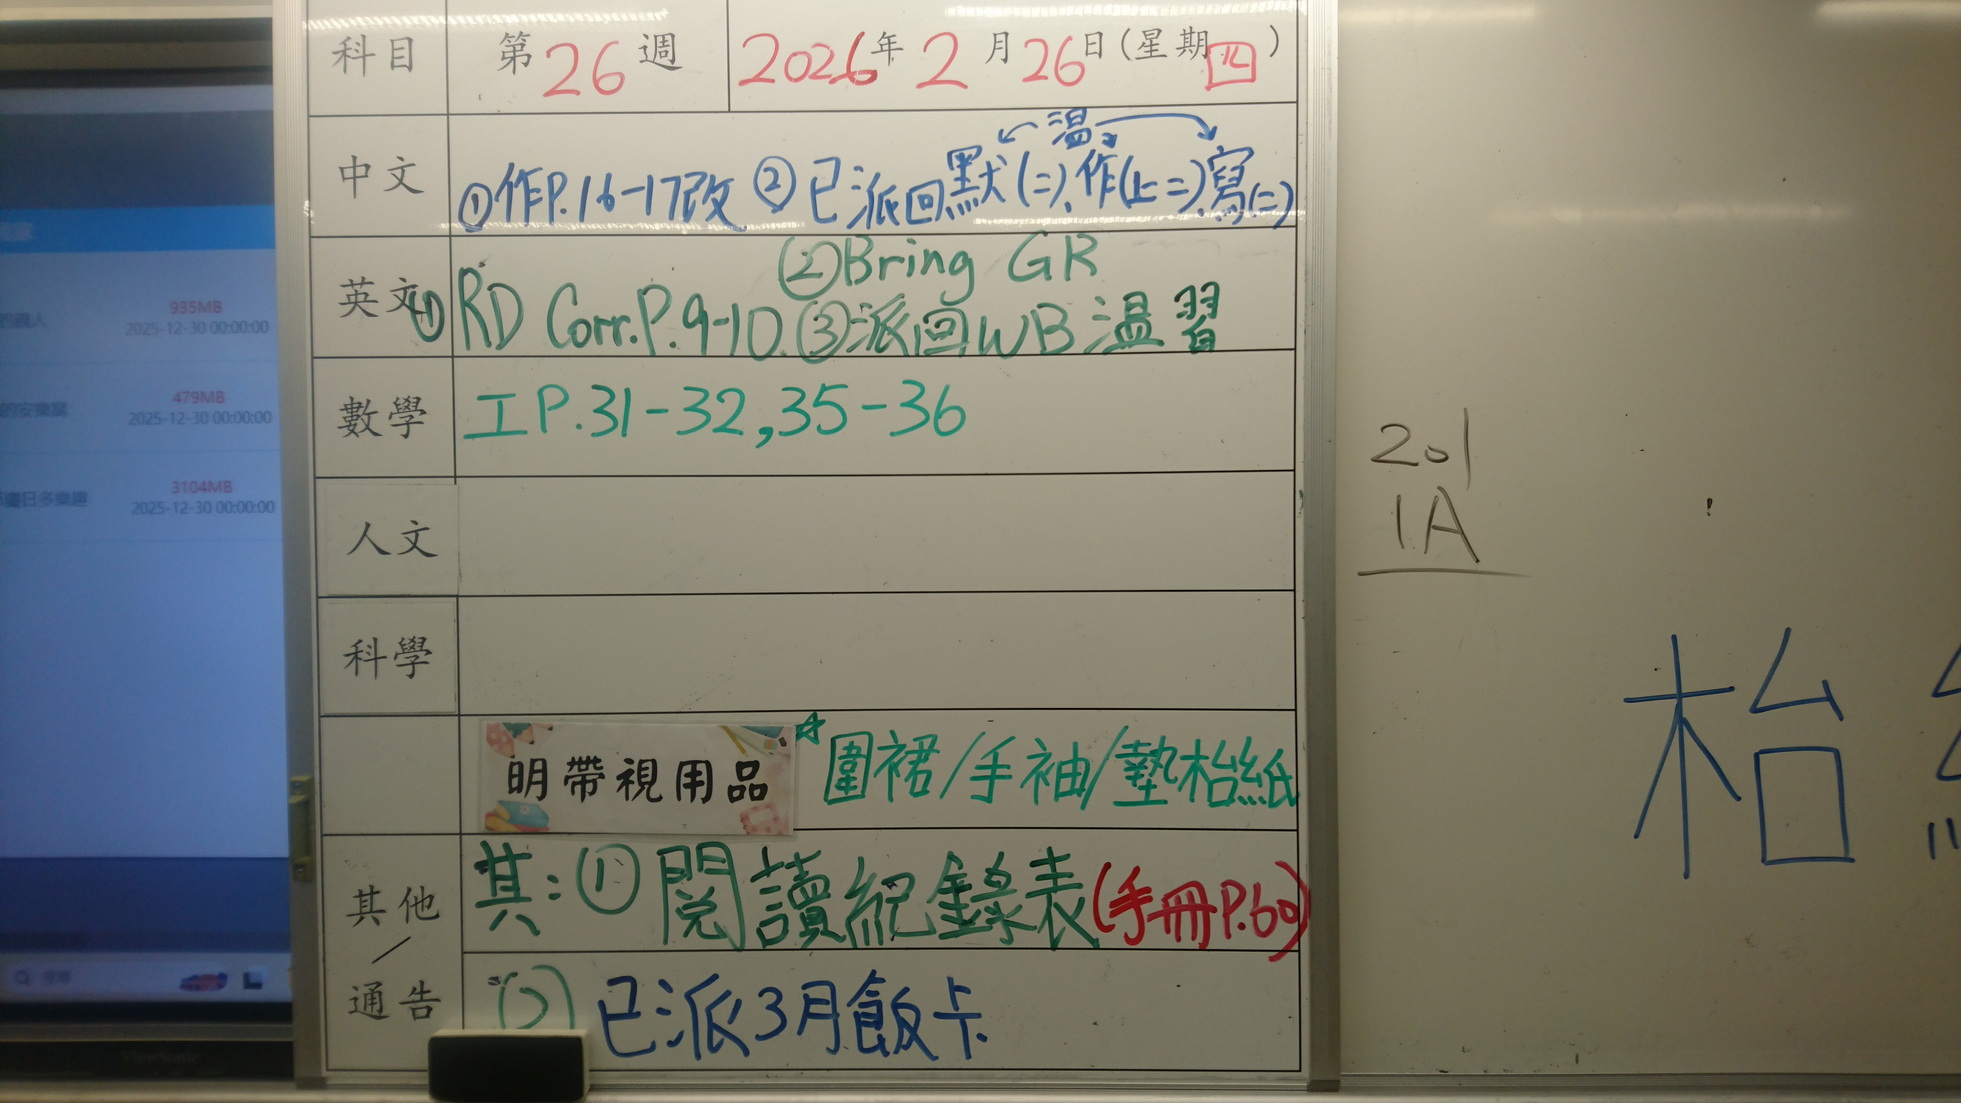 科目 第26週 2026年2月26日(星期四)
中文 ①作P.16-17改 ②已派回默(二)、作(上二)、寫(二)
溫
英文 ①RD Corr.P.9-10 ②Bring GR
③派回WB溫習
數學 工P.31-32,35-36
人文
科學
明帶視用品 ☆圍裙/手袖/墊枱紙
其他/通告
其:①閱讀紀錄表(手冊P.60)
② 已派3月飯卡
201
1A
枱
935MB
2025-12-30 00:00:00
479MB
2025-12-30 00:00:00
3104MB
2025-12-30 00:00:00
ViewSonic